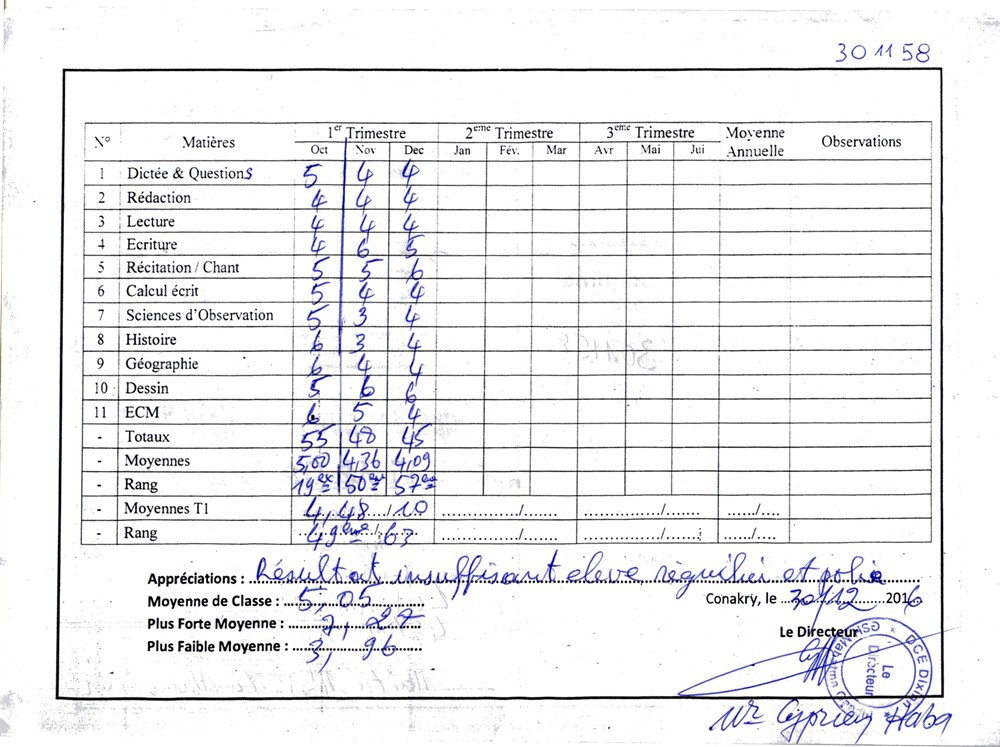 30 11 58
N° Matières 1er Trimestre 2eme Trimestre 3eme Trimestre Moyenne Annuelle Observations
Oct Nov Dec Jan Fév. Mar Avr Mai Jui
1 Dictée & Questions 5 4 4
2 Rédaction 4 4 4
3 Lecture 4 4 4
4 Ecriture 4 6 5
5 Récitation / Chant 5 5 6
6 Calcul écrit 5 4 4
7 Sciences d'Observation 5 3 4
8 Histoire 6 3 4
9 Géographie 6 4 4
10 Dessin 5 6 6
11 ECM 6 5 4
- Totaux 55 48 45
- Moyennes 5,00 4,36 4,09
- Rang 19ex 50em 57em
- Moyennes T1 4,48 /10 ............../...... ............../...... ....../....
- Rang 49eme / 63 ............../...... ............../...... ....../....
Appréciations : Résultat insuffisant élève régulier et polie
Moyenne de Classe : 5,05 Conakry, le 30/12 2016
Plus Forte Moyenne : 7,27
Le Directeur
Plus Faible Moyenne : 3,96
DCE DIXINN
Le Directeur
Mr Cyprien Haba